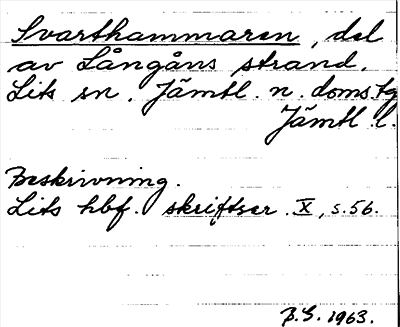 Svarthammaren, del
av Långåns strand.
Lits sn. Jämtl. n. doms.tg
Jämtl. l.
Beskrivning.
Lits hbf. skriftser. X, s. 56.
B.G. 1963.